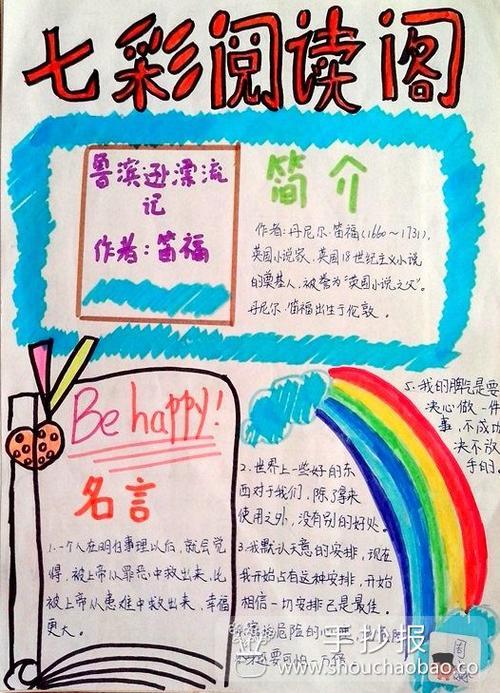 七彩阅读阁
鲁滨逊漂流
记
作者:笛福
简介
作者:丹尼尔·笛福(1660～1731),
英国小说家,英国18世纪主义小说
的奠基人,被誉为"英国小说之父"。
丹尼尔·笛福出生于伦敦。
Be happy!
名言
1.一个人在明白事理以后,就会觉
得,被上帝从罪恶中救出来,比
被上帝从患难中救出来,幸福
更大。
2.世界上一些好的东
西对于我们,除了拿来
使用之外,没有别的好处。
3.我默认天意的安排,现在
我开始占有这种安排,开始
相信一切安排已是最佳。
危险的心理
还要可怕
5.我的脾气是要
决心做一件
事,不成功
决不放
手的。
手抄报
www.shouchaobao.co